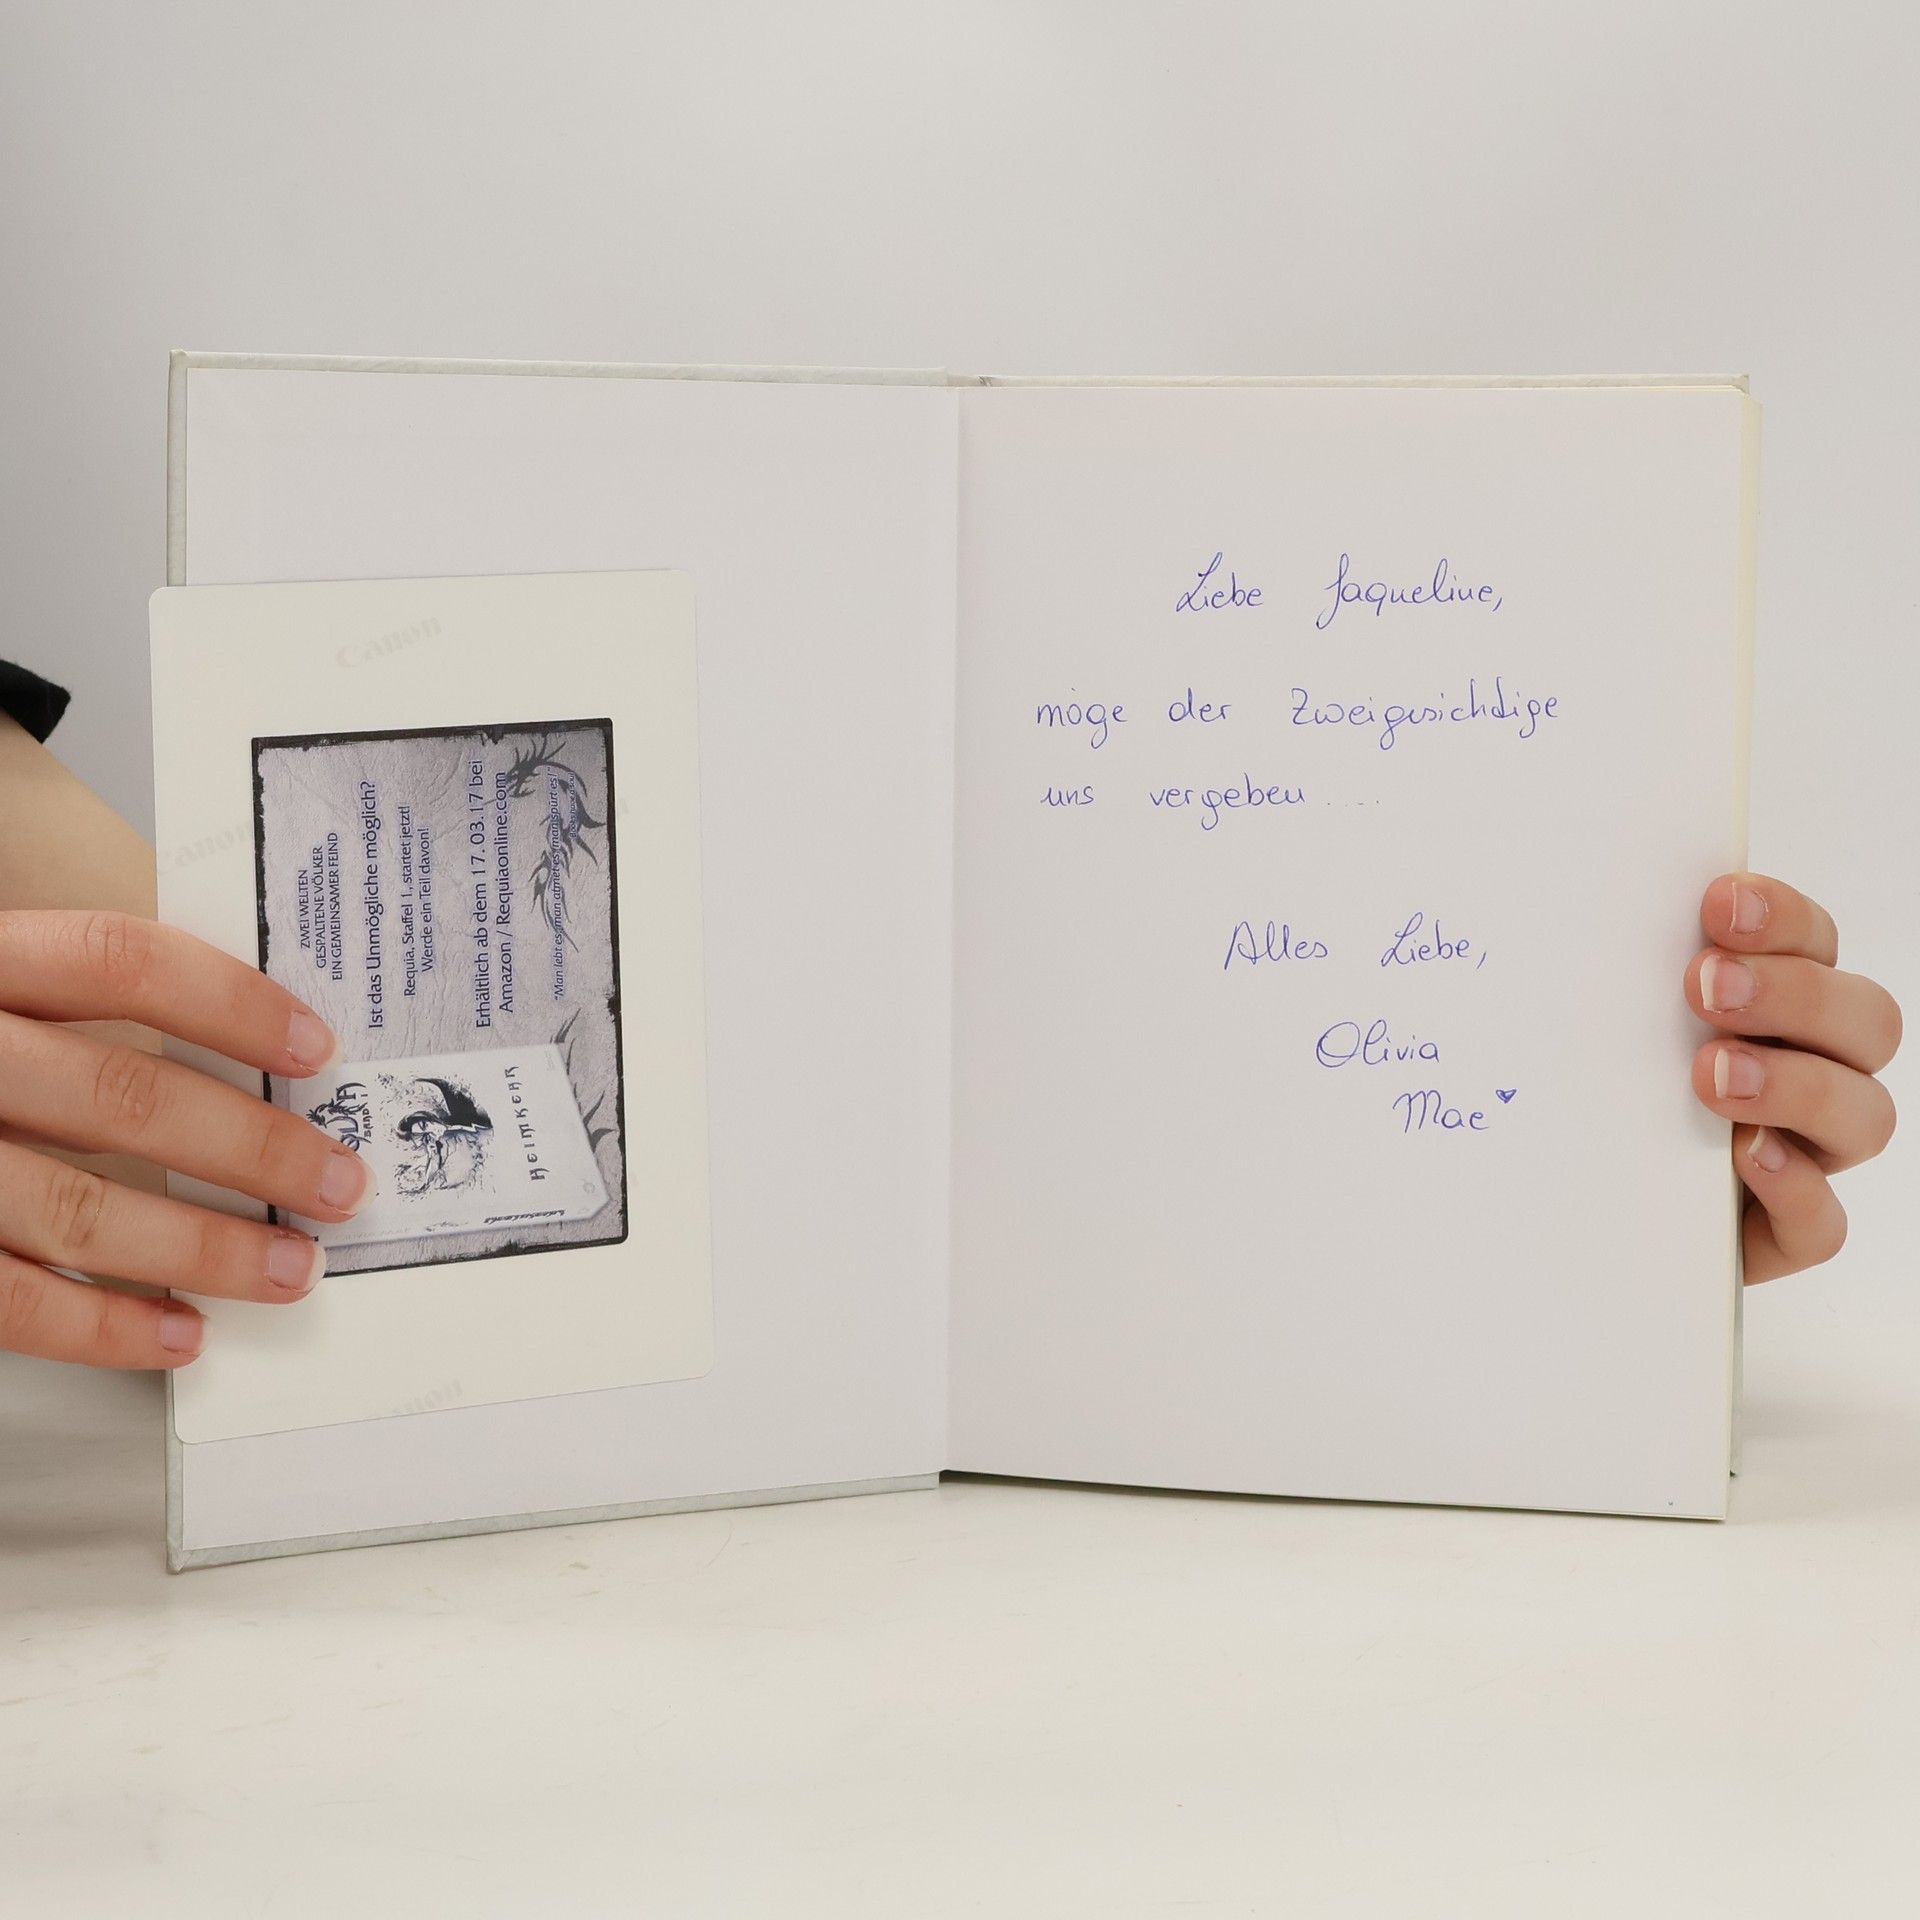 Canon
Canon
ZWEI WELTEN
GESPALTENE VÖLKER
EIN GEMEINSAMER FEIND
Ist das Unmögliche möglich?
Requia, Staffel 1., startet jetzt!
Werde ein Teil davon!
Erhältlich ab dem 17. 03.17 bei
Amazon / Requiaonline.com
"Man lebt es, man atmet es, man spürt es!"
BAND 1
HEIMKEHR
Canon
Liebe Jaqueline,
möge der Zweigesichtige
uns vergeben ....
Alles Liebe,
Olivia
Mae